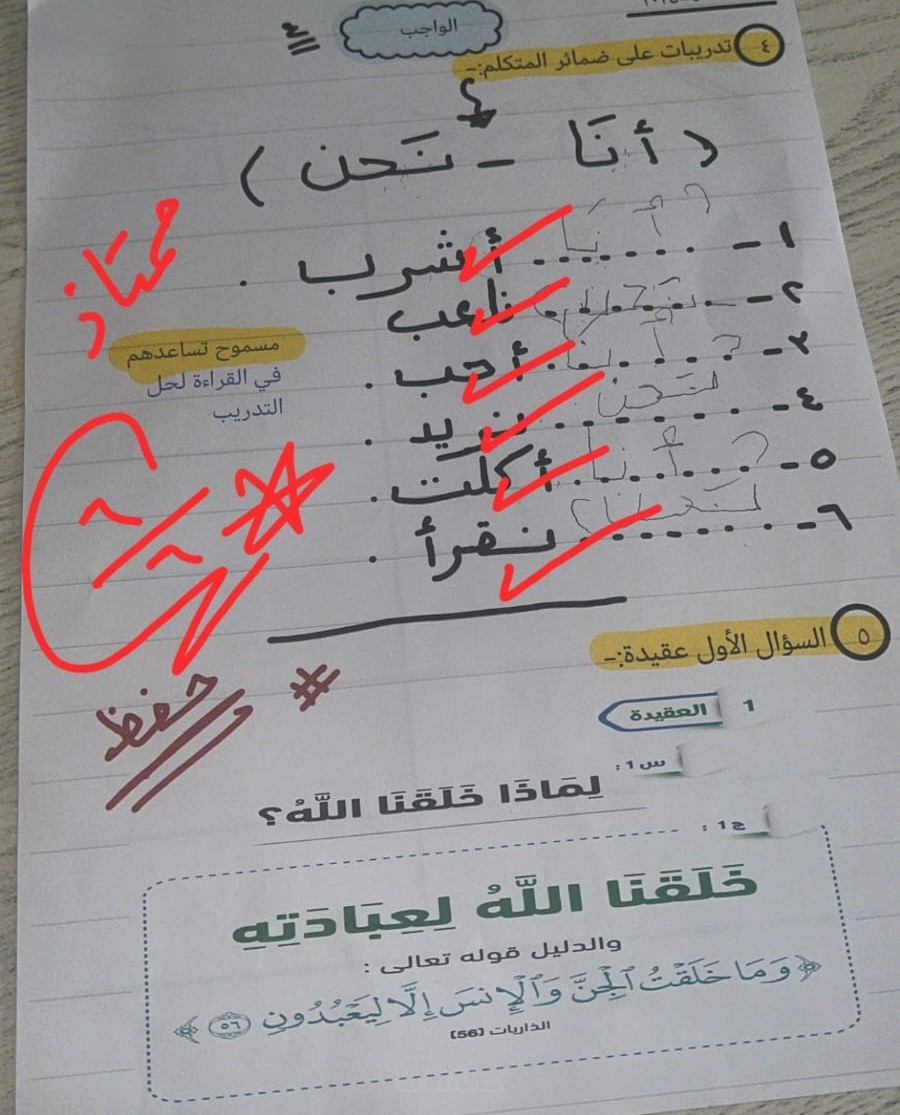 الواجب
٤ تدريبات على ضمائر المتكلم:-
( أنَا - نَحن )
١- أنَا أشرب .
٢- نَحن نلعب
٣- أنا أحب .
٤- نَحن نريد .
٥- أنا أكلت .
٦- نقرأ .
ممتاز
مسموح تساعدهم
في القراءة لحل
التدريب
٥ السؤال الأول عقيدة:-
# حفظ
1 العقيدة
س1 :
لِمَاذَا خَلَقَنَا اللَّهُ؟
ج1 :
خَلَقَنَا اللَّهُ لِعِبَادَتِهِ
والدليل قوله تعالى :
﴿ وَمَا خَلَقْتُ ٱلْجِنَّ وَٱلْإِنسَ إِلَّا لِيَعْبُدُونِ ٥٦ ﴾
الذاريات (56)